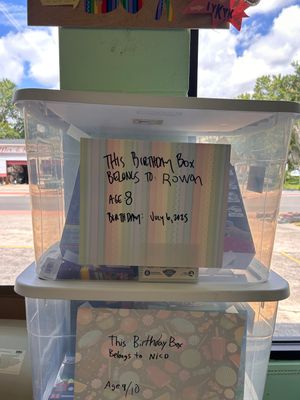 THIS BIRTHDAY BOX
BELONGS TO: Rowan
AGE 8
BIRTHDAY: July 6, 2025
This Birthday Box
Belongs to NICO
Age 9/10